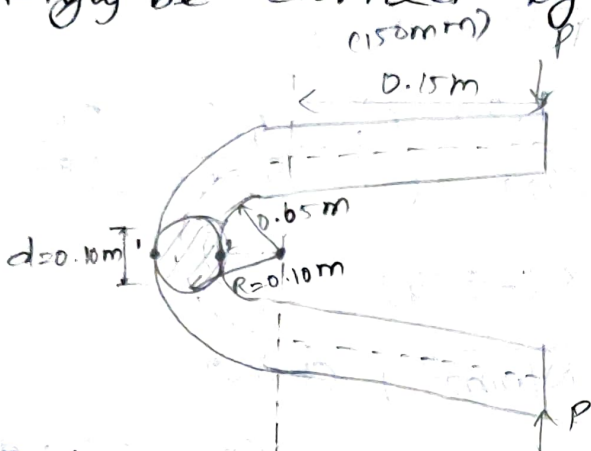 may be
(150mm)
P
0.15m
0.65m
d=0.10m
1
2
R=0.10m
P